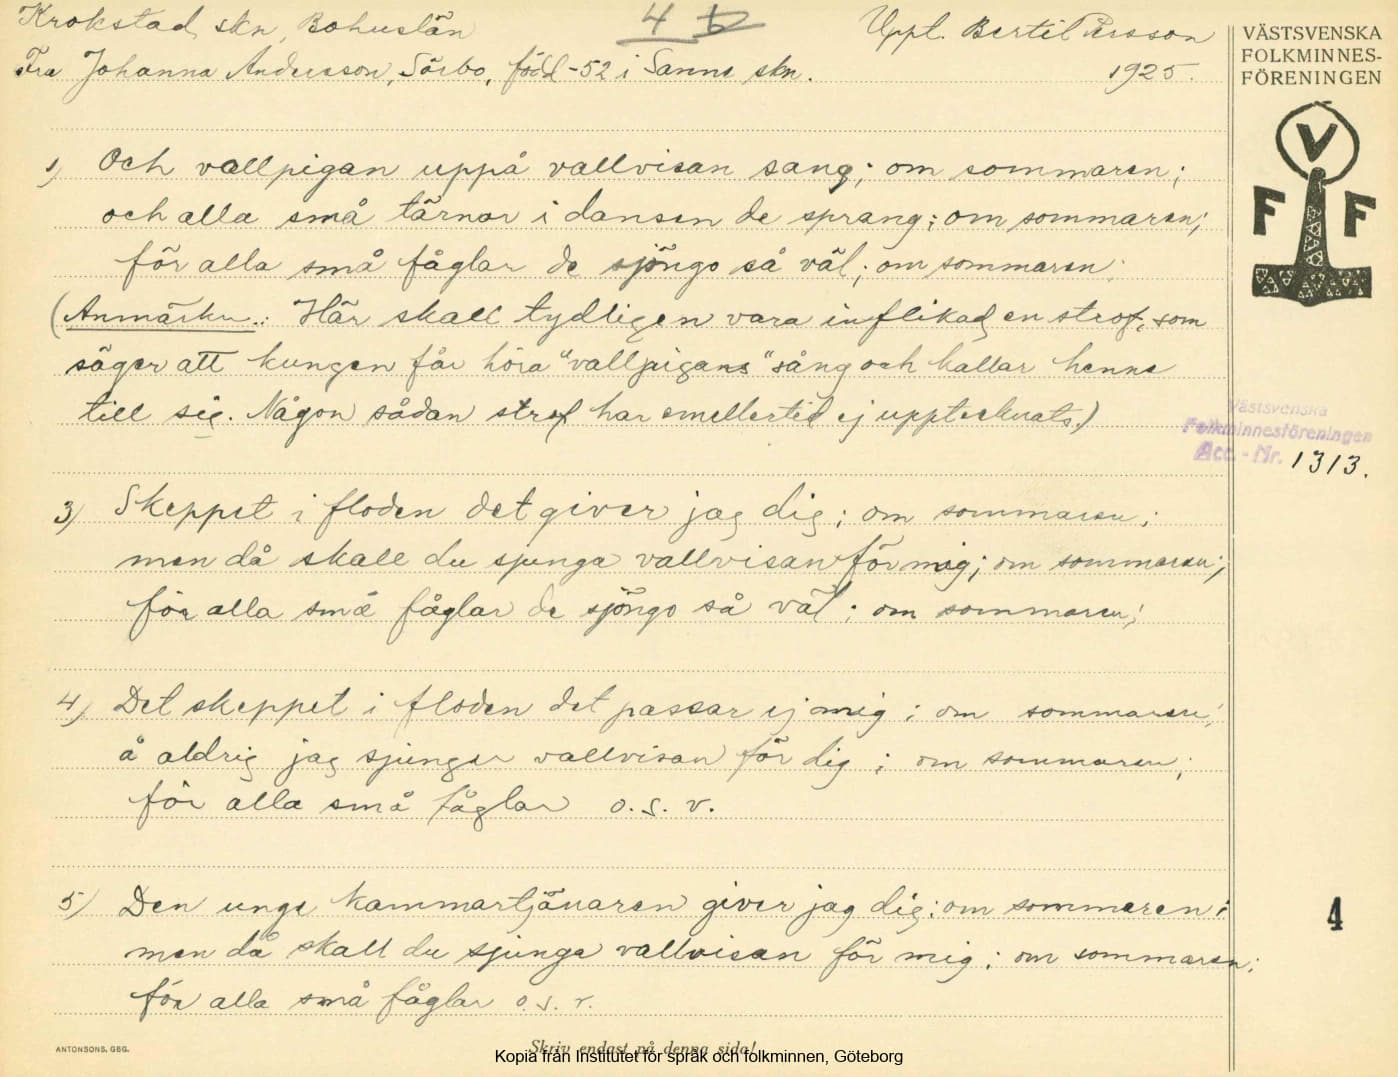 Krokstad skn, Bohuslän
4 b
Uppt. Bertil Persson
Fra Johanna Andersson, Sörbo, född -52 i Sanne skn.
1925.
VÄSTSVENSKA
FOLKMINNES-
FÖRENINGEN
V
F F
1) Och vallpigan uppå vallvisan sang; om sommaren;
och alla små tärnor i dansen de sprang; om sommaren;
för alla små fåglar de sjöngo så väl; om sommaren;
(Anmärkn.: Här skall tydligen vara inflikad en strof, som
säger att kungen får höra "vallpigans" sång och kallar henne
till sig. Någon sådan strof har emellertid ej upptecknats.)
Västsvenska
Folkminnesföreningen
Acc. - Nr. 1313.
3) Skeppet i floden det giver jag dig; om sommaren;
men då skall du sjunga vallvisan för mig; om sommaren;
för alla små fåglar de sjöngo så väl; om sommaren;
4) Det skeppet i floden det passar ej mig; om sommaren;
å aldrig jag sjunger vallvisan för dig; om sommaren;
för alla små fåglar o.s.v.
5) Den unge kammartjänaren giver jag dig; om sommaren;
men då skall du sjunga vallvisan för mig; om sommaren;
för alla små fåglar o.s.v.
4
ANTONSONS, GBG.
Skriv endast på denna sida!
Kopia från Institutet för språk och folkminnen, Göteborg